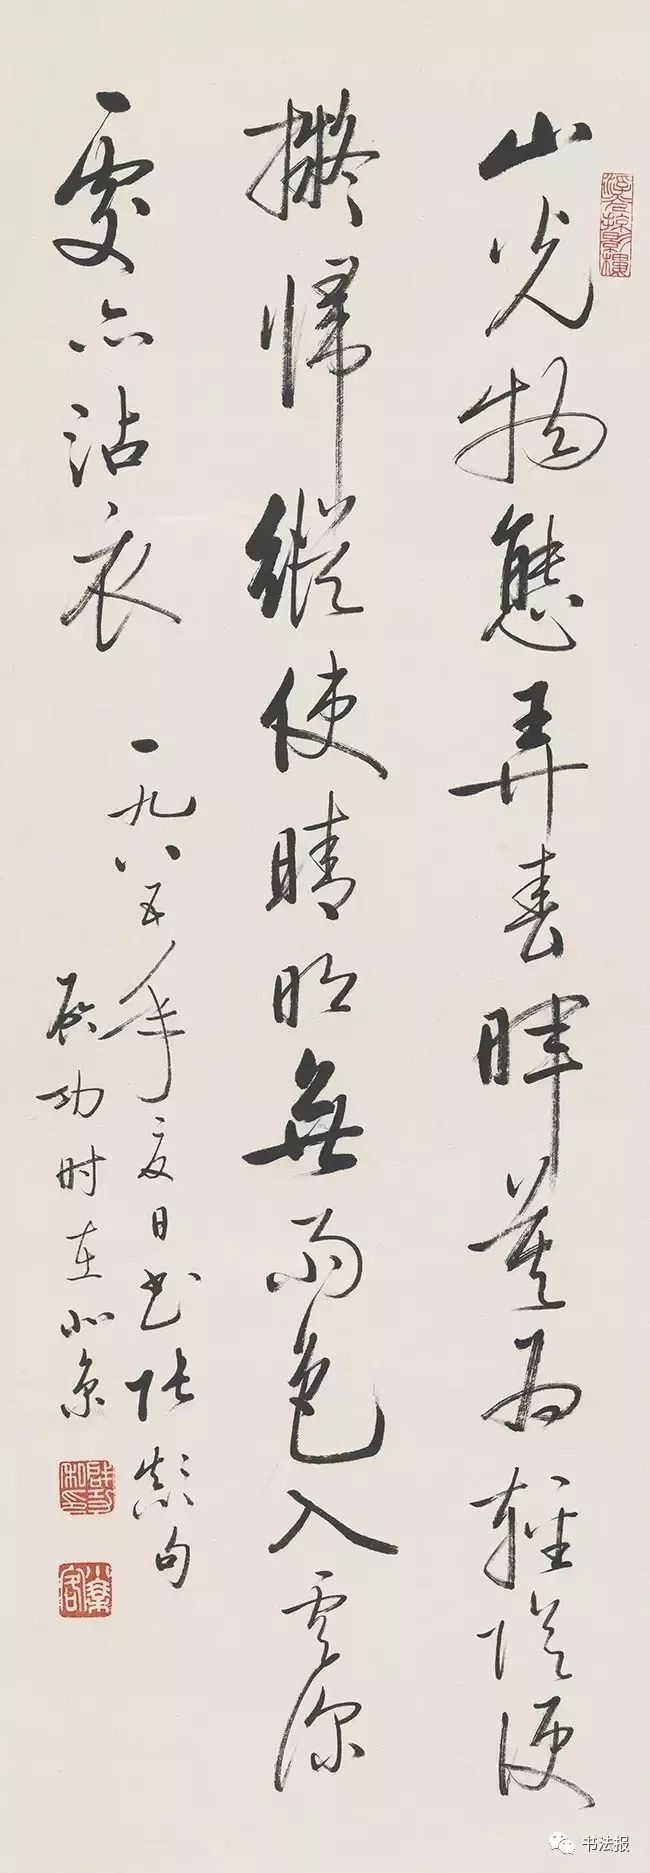 浮光掠影樓
山光物態弄春暉莫為輕陰便
擬歸縱使晴明無雨色入雲深
處亦沾衣
一九八五年夏日书張顛句
啟功时在北京
书法报